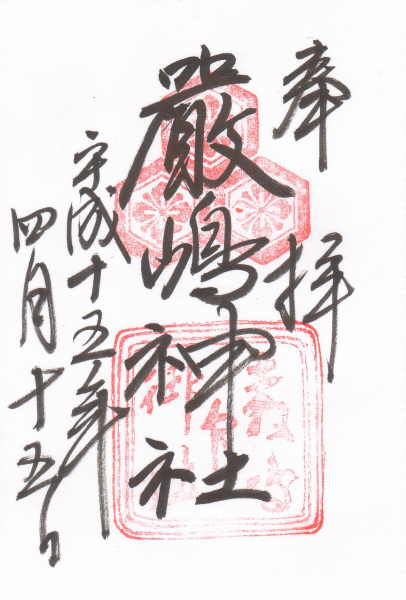 奉拝
嚴嶋神社
平成十五年
四月十五日